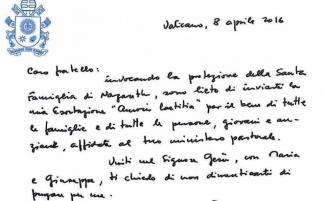 Vaticano, 8 aprile 2016
Caro fratello:
invocando la protezione della Santa
Famiglia di Nazareth, sono lieto di inviarti la
mia Esortazione "Amoris laetitia" per il bene di tutte
le famiglie e di tutte le persone, giovani e an-
ziane, affidate al tuo ministero pastorale.
Uniti nel Signore Gesù, con Maria
e Giuseppe, ti chiedo di non dimenticarti di
pregare per me.